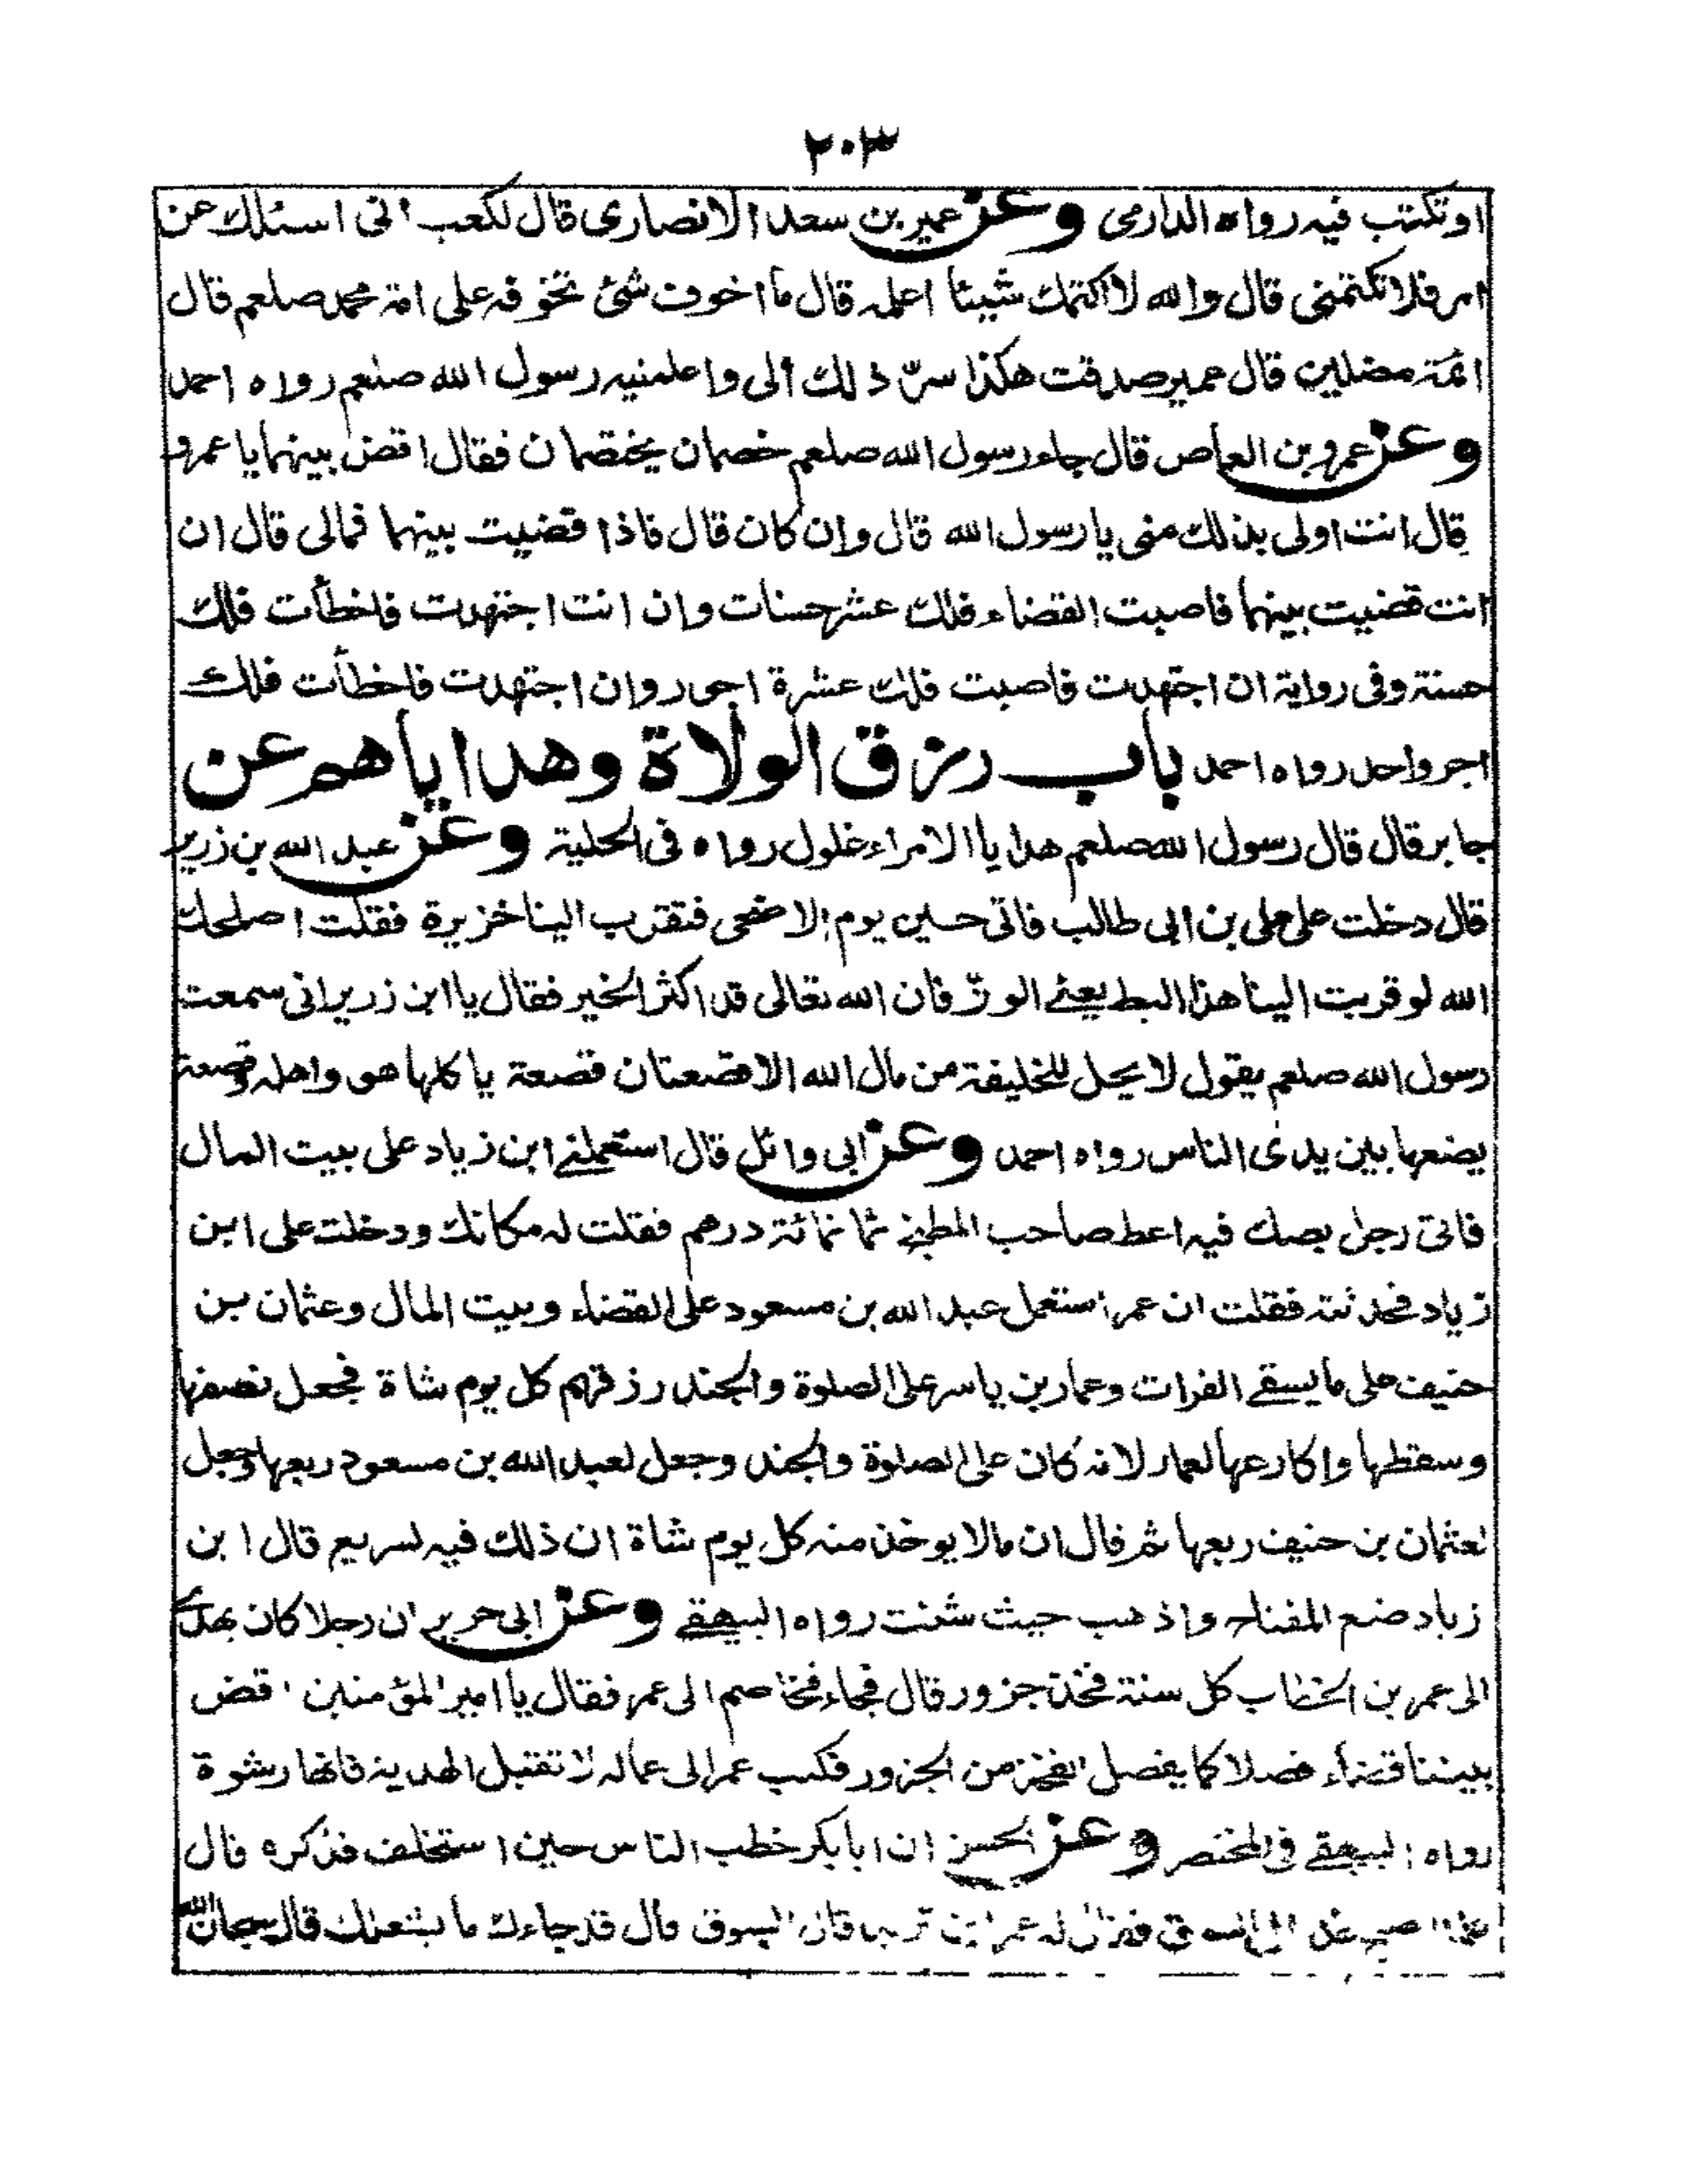 ٢٠٣
او تكتب فيه رواه الدارمي وعن عمير بن سعد الانصارى قال قال لكعب انى اسئلك عن
امر فلا تكتمنى قال والله لا اكتمك شيئا اعلمه قال ما اخوف شئ تخوفه على امة محمد صلعم قال
ائمة مضلين قال عمير صدقت هكذا سرّ ذلك الى واعلمنيه رسول الله صلعم رواه احمد
وعن عمرو بن العاص قال جاء رسول الله صلعم خصمان يختصمان فقال اقض بينهما يا عمرو
قال انت اولى بذلك منى يا رسول الله قال وان كان قال فاذا قضيت بينهما فمالى قال ان
انت قضيت بينهما فاصبت القضاء فلك عشر حسنات وان انت اجتهدت فاخطأت فلك
حسنة وفى رواية ان اجتهدت فاصبت فلك عشرة اجور وان اجتهدت فاخطأت فلك
اجر واحد رواه احمد باب رزق الولاة وهداياهم عن
جابر قال قال رسول الله صلعم هدايا الامراء غلول رواه فى الحلية وعن عبد الله بن زرير
قال دخلت على على بن ابى طالب فاتى حسين يوم الاضحى فتقرب الينا خزيرة فقلت اصلحك
الله لو قربت الينا هذا البط يعنے الوزّ فان الله تعالى قد اكثر الخير فقال يا ابن زرير انى سمعت
رسول الله صلعم يقول لا يحل للخليفة من مال الله الا قصعتان قصعة ياكلها هو واهله وقصعة
يضعها بين يدى الناس رواه احمد وعن ابى وائل قال استعملنے ابن زياد على بيت المال
فاتى رجل بصك فيه اعط صاحب المطبخ ثمانمائة درهم فقلت له مكانك ودخلت على ابن
زياد فحدثته فقلت ان عمر استعمل عبد الله بن مسعود على القضاء وبيت المال وعثمان بن
حنيف على ما يسقے الفرات وعمار بن ياسر على الصلوة والجند رزقهم كل يوم شاة فجعل نصفها
وسقطها واكارعها لعمار لانه كان على الصلوة والجند وجعل لعبد الله بن مسعود ربعها وجعل
لعثمان بن حنيف ربعها ثم قال ان مالا يوخذ منه كل يوم شاة ان ذلك فيه لسريع قال ابن
زياد ضع المفتاح واذهب حيث شئت رواه البيهقے وعن ابى حرير ان رجلا كان يهدى
الى عمر بن الخطاب كل سنة فخذ جزور قال فجاء فخاصم الى عمر فقال يا امير المؤمنين اقض
بيننا قضاء فصلا كما يفصل الفخذ من الجزور فكتب عمر الى عماله لا تقبل الهدية فانها رشوة
رواه البيهقے فى المختصر وعن الحسن ان ابا بكر خطب الناس حين استخلف فذكره قال
السوق قال قد جاءك ما يشغلك قال سبحان الله